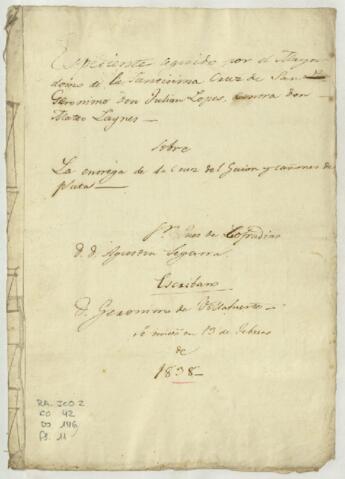 Espediente seguido por el Mayor
domo de la Santisima Cruz de San
Geronimo don Julian Lopes, contra don
Mateo Laynes
Sobre
La entrega de la Cruz del Guion y cañones de
plata
Sr. Jues de Cofradias
D. D. Agustin
Escribano
D. Geronimo de Villafuerte
Se inició en 13 de Febrero
de
1838
RA. JCO 2
CO 42
DO 146
FS. 11